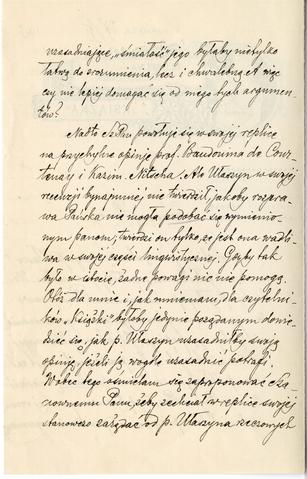 uzasadniające, „śmiałość" jego byłaby nietylko
łatwą do zrozumienia, lecz i chwalebną. A więc
czy nie lepiej domagać się od niego tych argumen-
tów?
Nadto Sz. Pan powołuje się w swojej replice
na przychylne opinje prof. Baudouina de Cour-
tenay i Kazim. Nitscha. Ale Ułaszyn w swojej
recenzji bynajmniej nie twierdził, jakoby rozpra-
wa Pańska nie mogła podobać się wymienio-
nym panom, twierdzi on tylko, że jest ona wadli-
wa w swojej części lingwistycznej. Gdyby tak
było w istocie, żadne powagi nic nie pomogą.
Otóż dla mnie i, jak mniemam, dla czytelni-
ków „Książki" byłoby jedynie pożądanym dowie-
dzieć się, jak p. Ułaszyn uzasadniłby swoją
opinję, jeżeli ją wogóle uzasadnić potrafi.
Wobec tego ośmielam się zaproponować Sza-
nownemu Panu, żeby zechciał w replice swojej
stanowczo zażądać od p. Ułaszyna rzeczowych